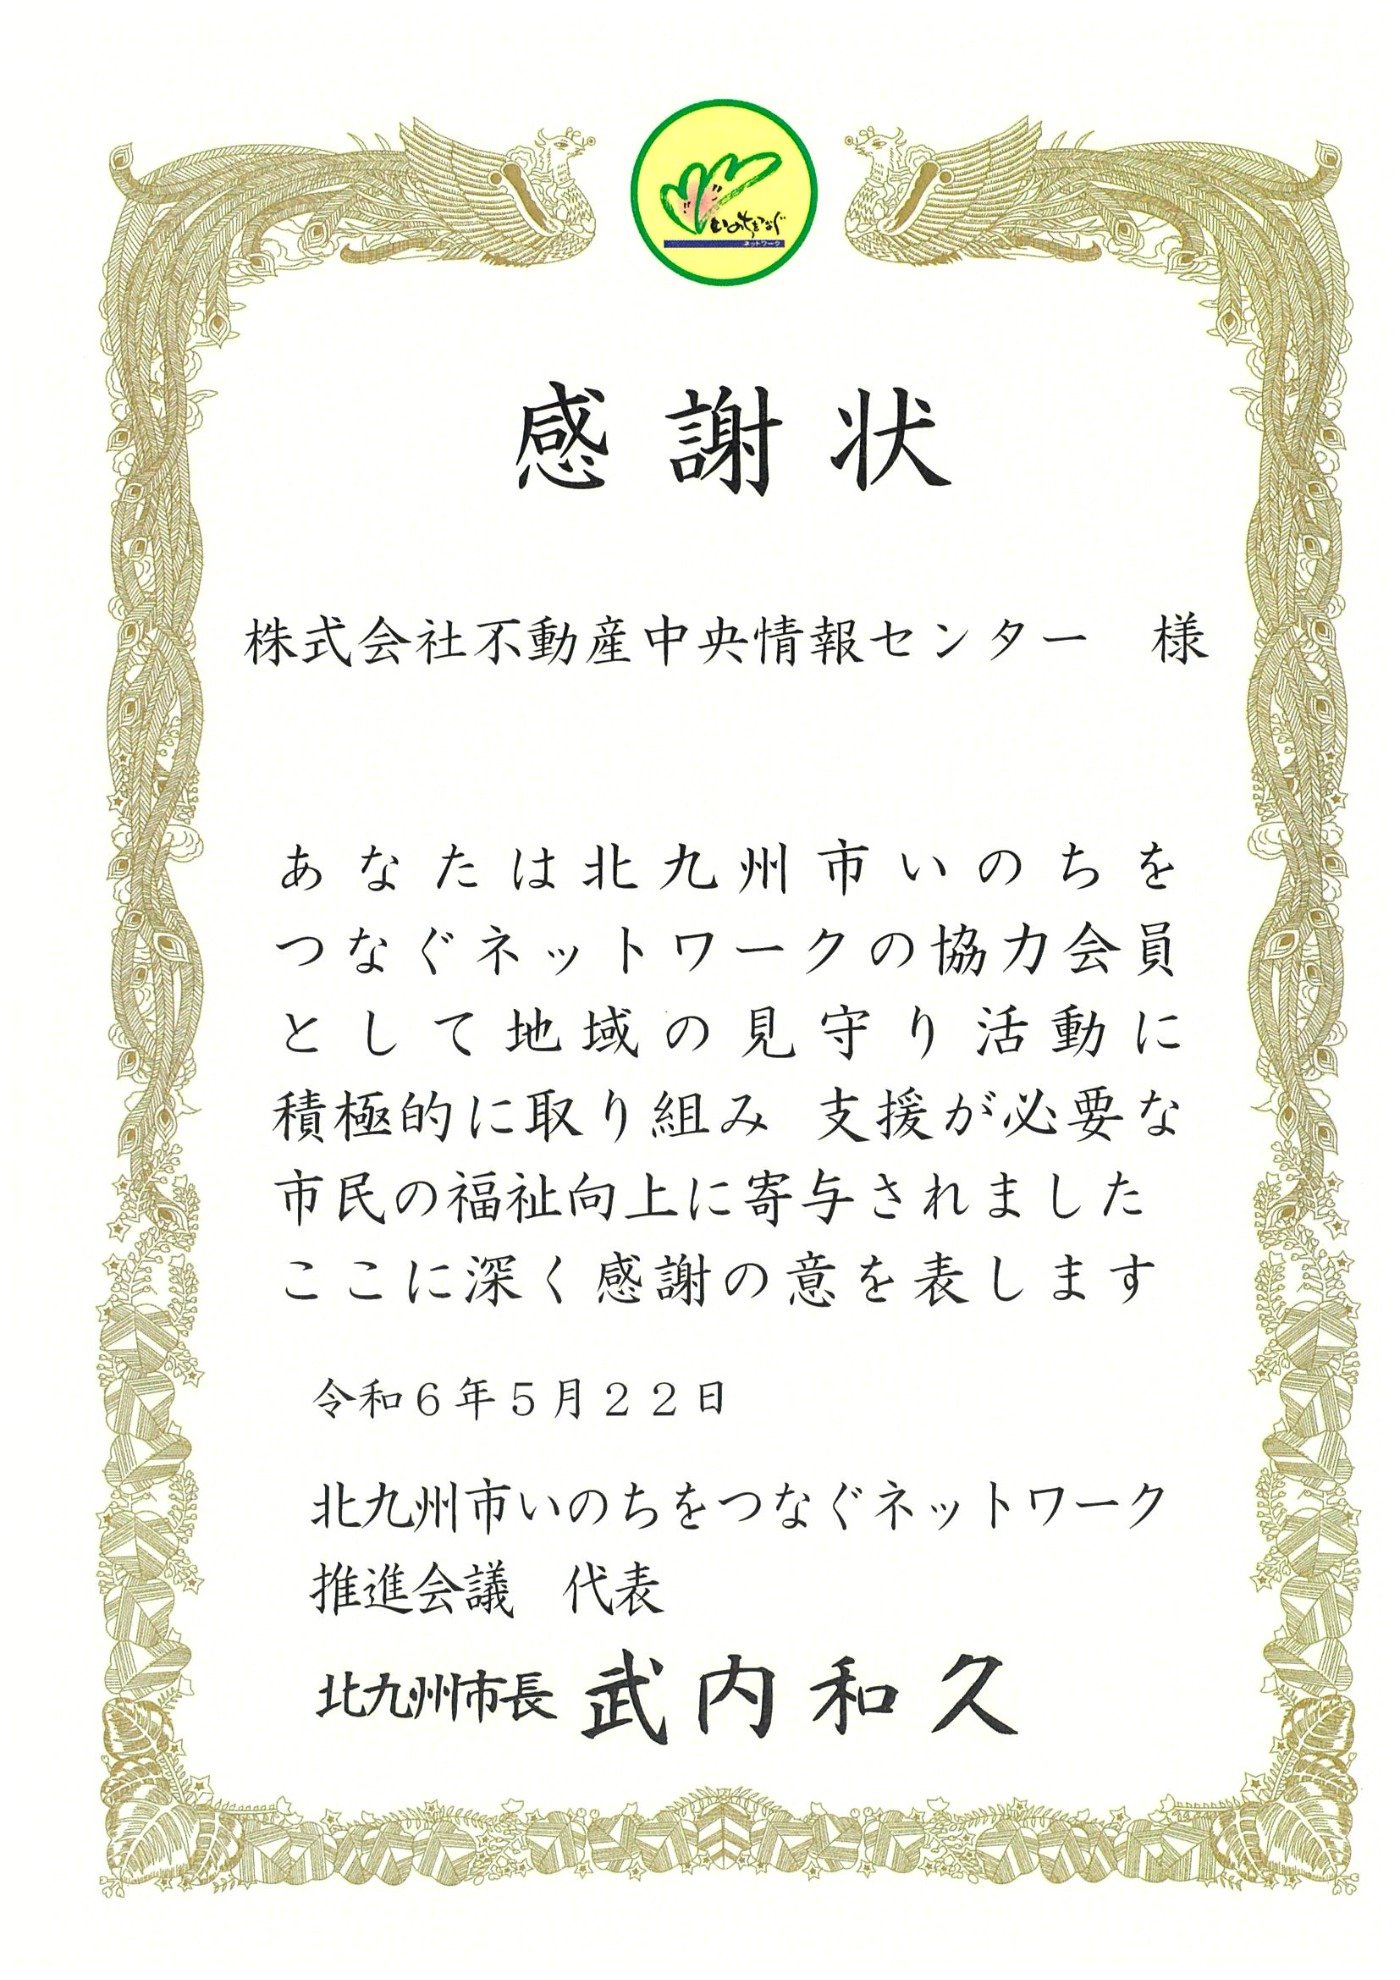 いのちをつなぐ
ネットワーク
感謝状
株式会社不動産中央情報センター　様
あなたは北九州市いのちを
つなぐネットワークの協力会員
として地域の見守り活動に
積極的に取り組み 支援が必要な
市民の福祉向上に寄与されました
ここに深く感謝の意を表します
令和６年５月２２日
北九州市いのちをつなぐネットワーク
推進会議　代表
北九州市長 武内和久